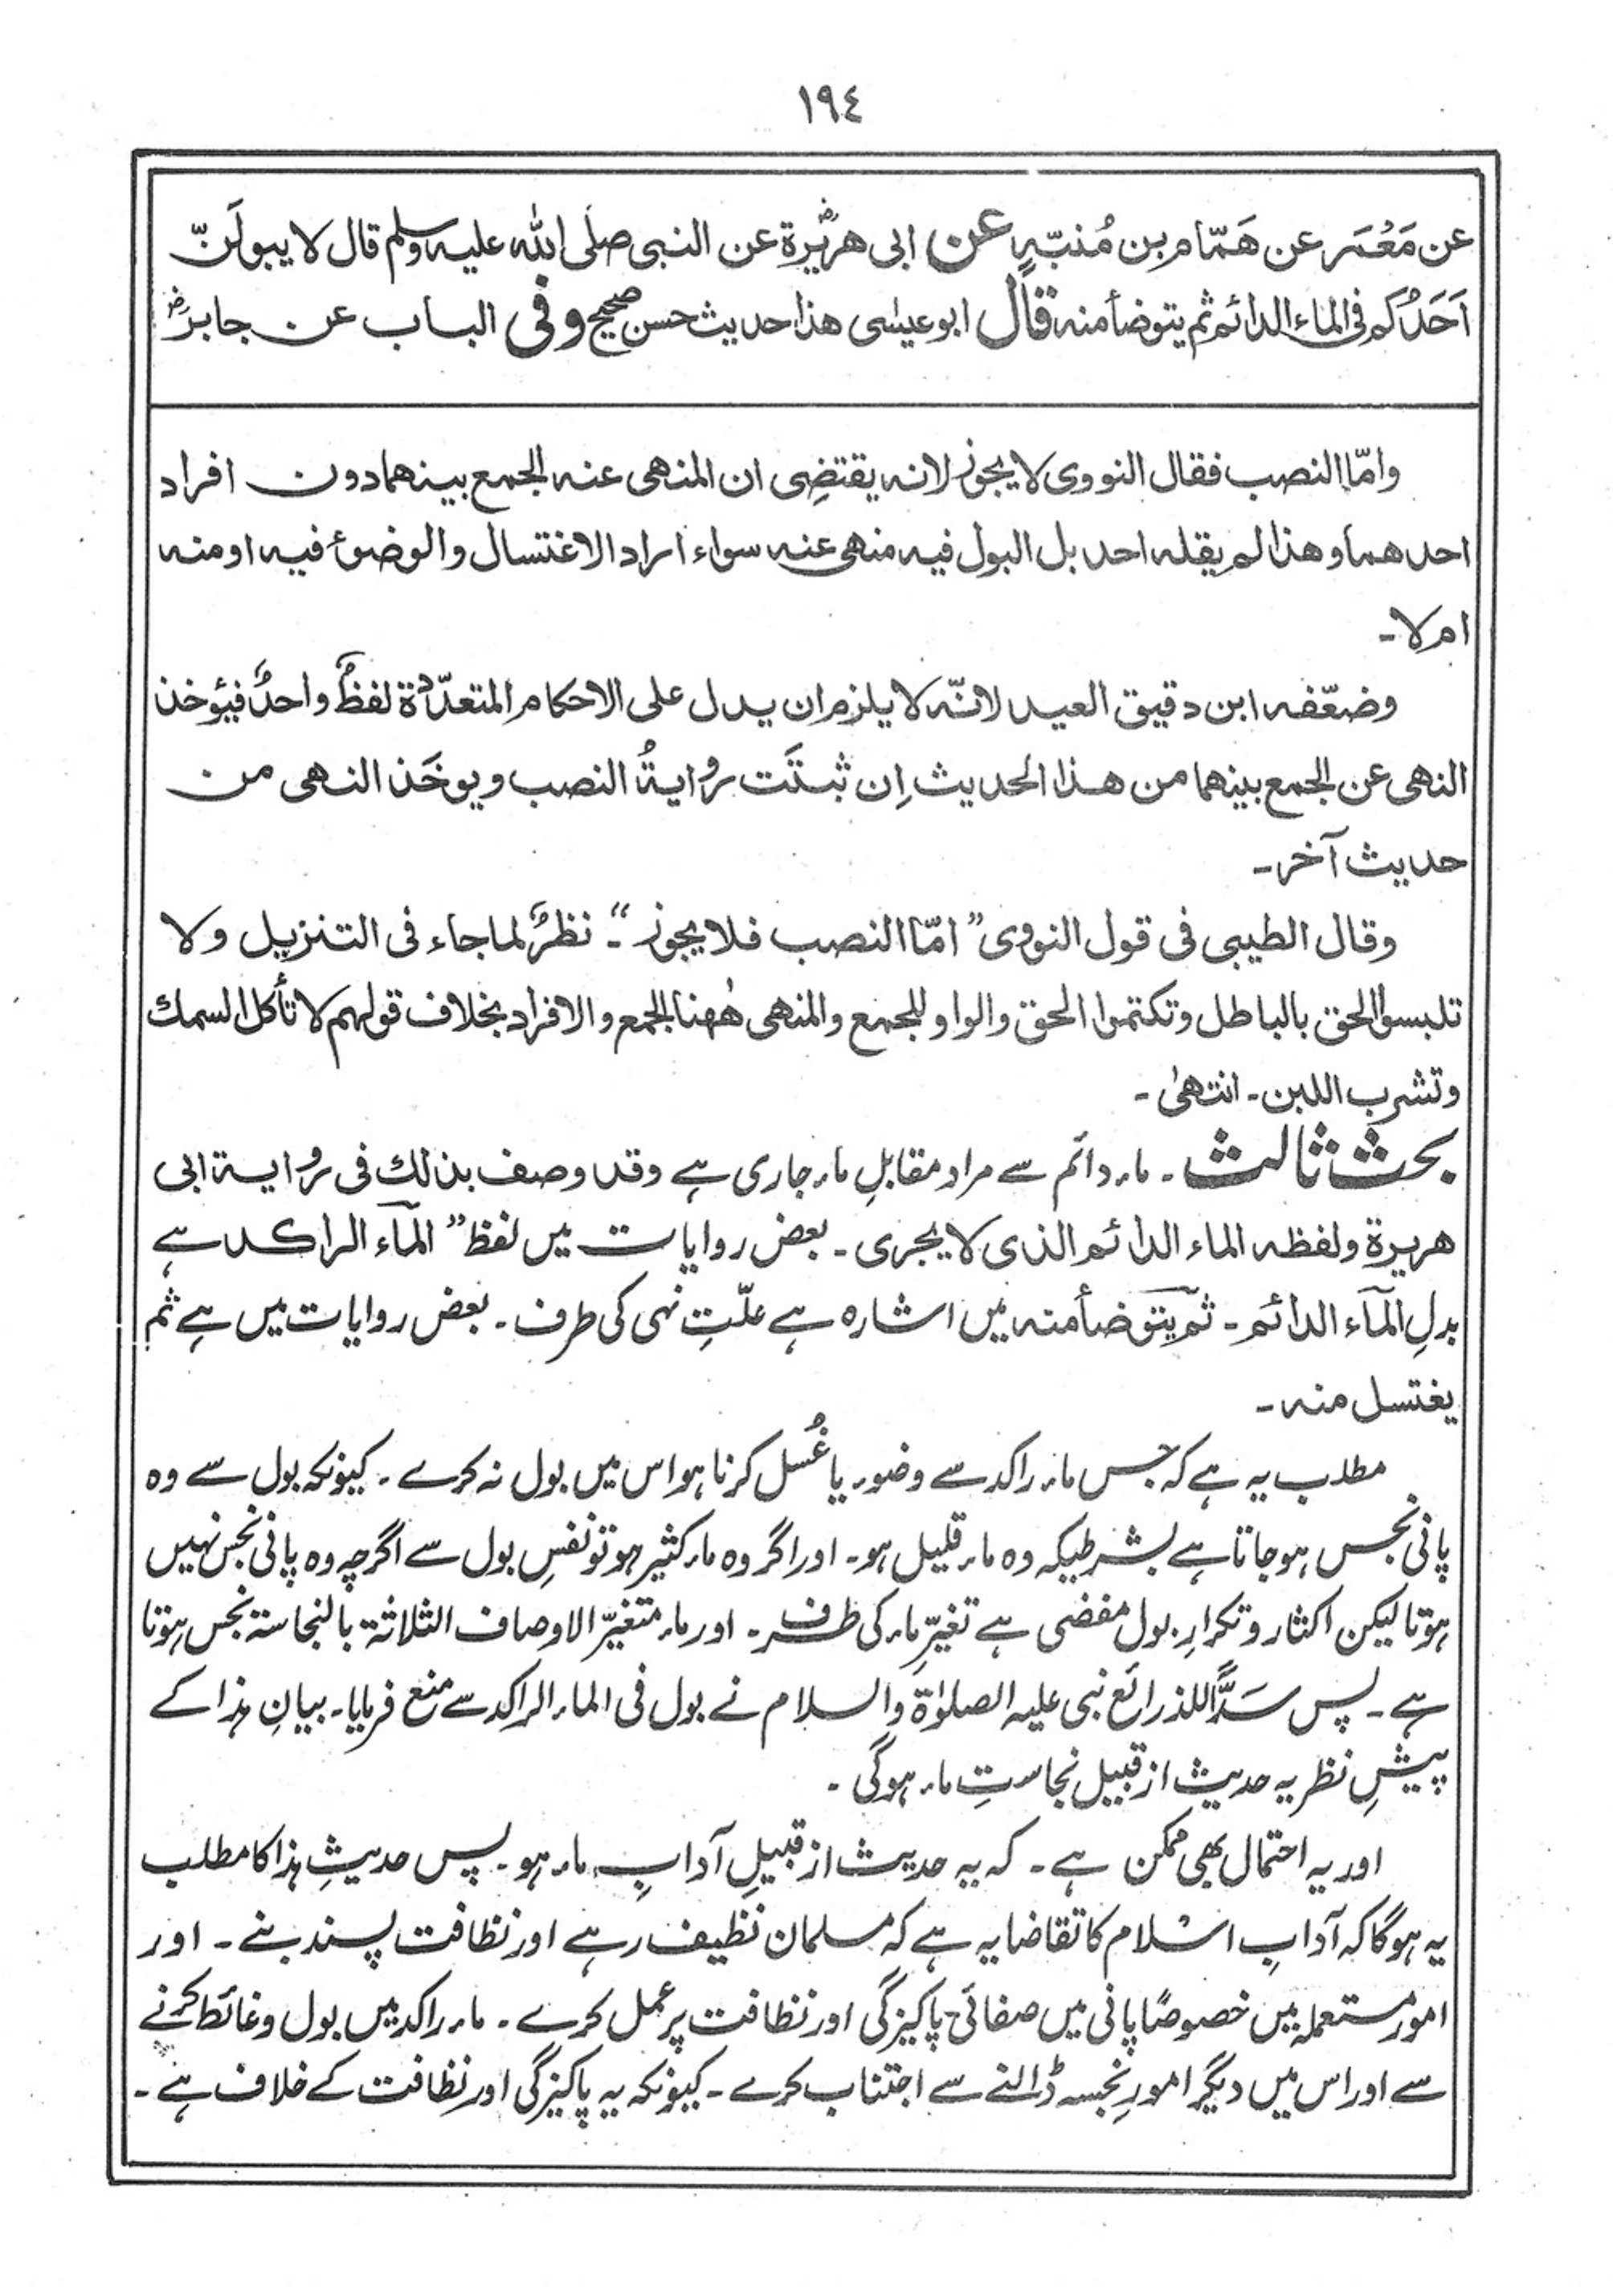 ١٩٤
عن مَعْمَر عن هَمّام بن مُنبّهٍ عن ابی هریرةؓ عن النبی صلی الله علیه وسلم قال لا یبولَنّ
اَحَدُكم فی الماء الدائم ثم یتوضأ منه قال ابوعیسٰی هذا حدیث حسن صحیح وفی الباب عن جابرؓ
وامّا النصب فقال النووی لا یجوز لانه یقتضِی ان المنهی عنه الجمع بینهما دون افراد
احدهما وهذا لم یقله احد بل البول فیه منهی عنه سواء اراد الاغتسال والوضوءَ فیه او منه
ام لا۔
وضعّفه ابن دقیق العید لانّه لا یلزم ان یدل علی الاحکام المتعدّدة لفظٌ واحدٌ فیؤخذ
النهی عن الجمع بینهما من هذا الحدیث اِن ثبتَت روایةُ النصب ویوخَذ النهی من
حدیث آخر۔
وقال الطیبی فی قول النووی ”امّا النصب فلا یجوز“۔ نظرٌ لما جاء فی التنزیل ولا
تلبسوا الحق بالباطل وتکتموا الحق والواو للجمع والمنهی هٰهنا الجمع والافراد بخلاف قولهم لا تأکل السمك
وتشرب اللبن۔ انتهیٰ۔
بحث ثالث ۔ ماء دائم سے مراد مقابلِ ماء جاری ہے وقد وصف بذلك فی روایة ابی
هریرة ولفظه الماء الدائم الذی لا یجری۔ بعض روایات میں لفظ ”الماء الراکد ہے
بدلِ الماء الدائم۔ ثم یتوضأ منه میں اشارہ ہے علّتِ نہی کی طرف۔ بعض روایات میں ہے ثم
یغتسل منه۔
مطلب یہ ہے کہ جس ماء راکد سے وضوء یا غُسل کرنا ہو اس میں بول نہ کرے۔ کیونکہ بول سے وہ
پانی نجس ہو جاتا ہے بشرطیکہ وہ ماء قلیل ہو۔ اور اگر وہ ماء کثیر ہو تو نفسِ بول سے اگرچہ وہ پانی نجس نہیں
ہوتا لیکن اکثار و تکرارِ بول مفضی ہے تغیّرِ ماء کی طرف۔ اور ماء متغیّر الاوصاف الثلاثۃ بالنجاسۃ نجس ہوتا
ہے۔ پس سَدًّا للذرائع نبی علیہ الصلوٰۃ والسلام نے بول فی الماء الراکد سے منع فرمایا۔ بیانِ ہٰذا کے
پیشِ نظر یہ حدیث از قبیل نجاستِ ماء ہوگی۔
اور یہ احتمال بھی ممکن ہے۔ کہ یہ حدیث از قبیلِ آدابِ ماء ہو۔ پس حدیثِ ہٰذا کا مطلب
یہ ہوگا کہ آدابِ اسلام کا تقاضا یہ ہے کہ مسلمان نظیف رہے اور نظافت پسند بنے۔ اور
امورِ مستعملہ میں خصوصًا پانی میں صفائی پاکیزگی اور نظافت پر عمل کرے۔ ماء راکد میں بول و غائط کرنے
سے اور اس میں دیگر امورِ نجسہ ڈالنے سے اجتناب کرے۔ کیونکہ یہ پاکیزگی اور نظافت کے خلاف ہے۔